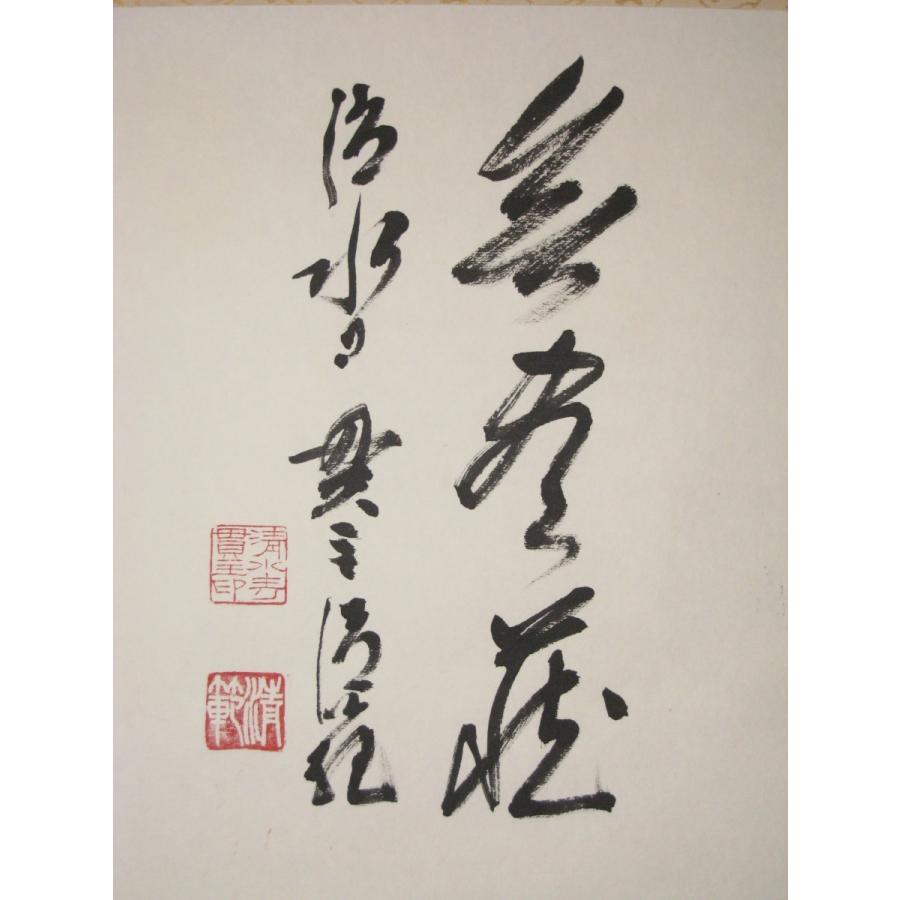 無尽蔵
清水寺 貫主 清範
清水寺
貫主印
清範